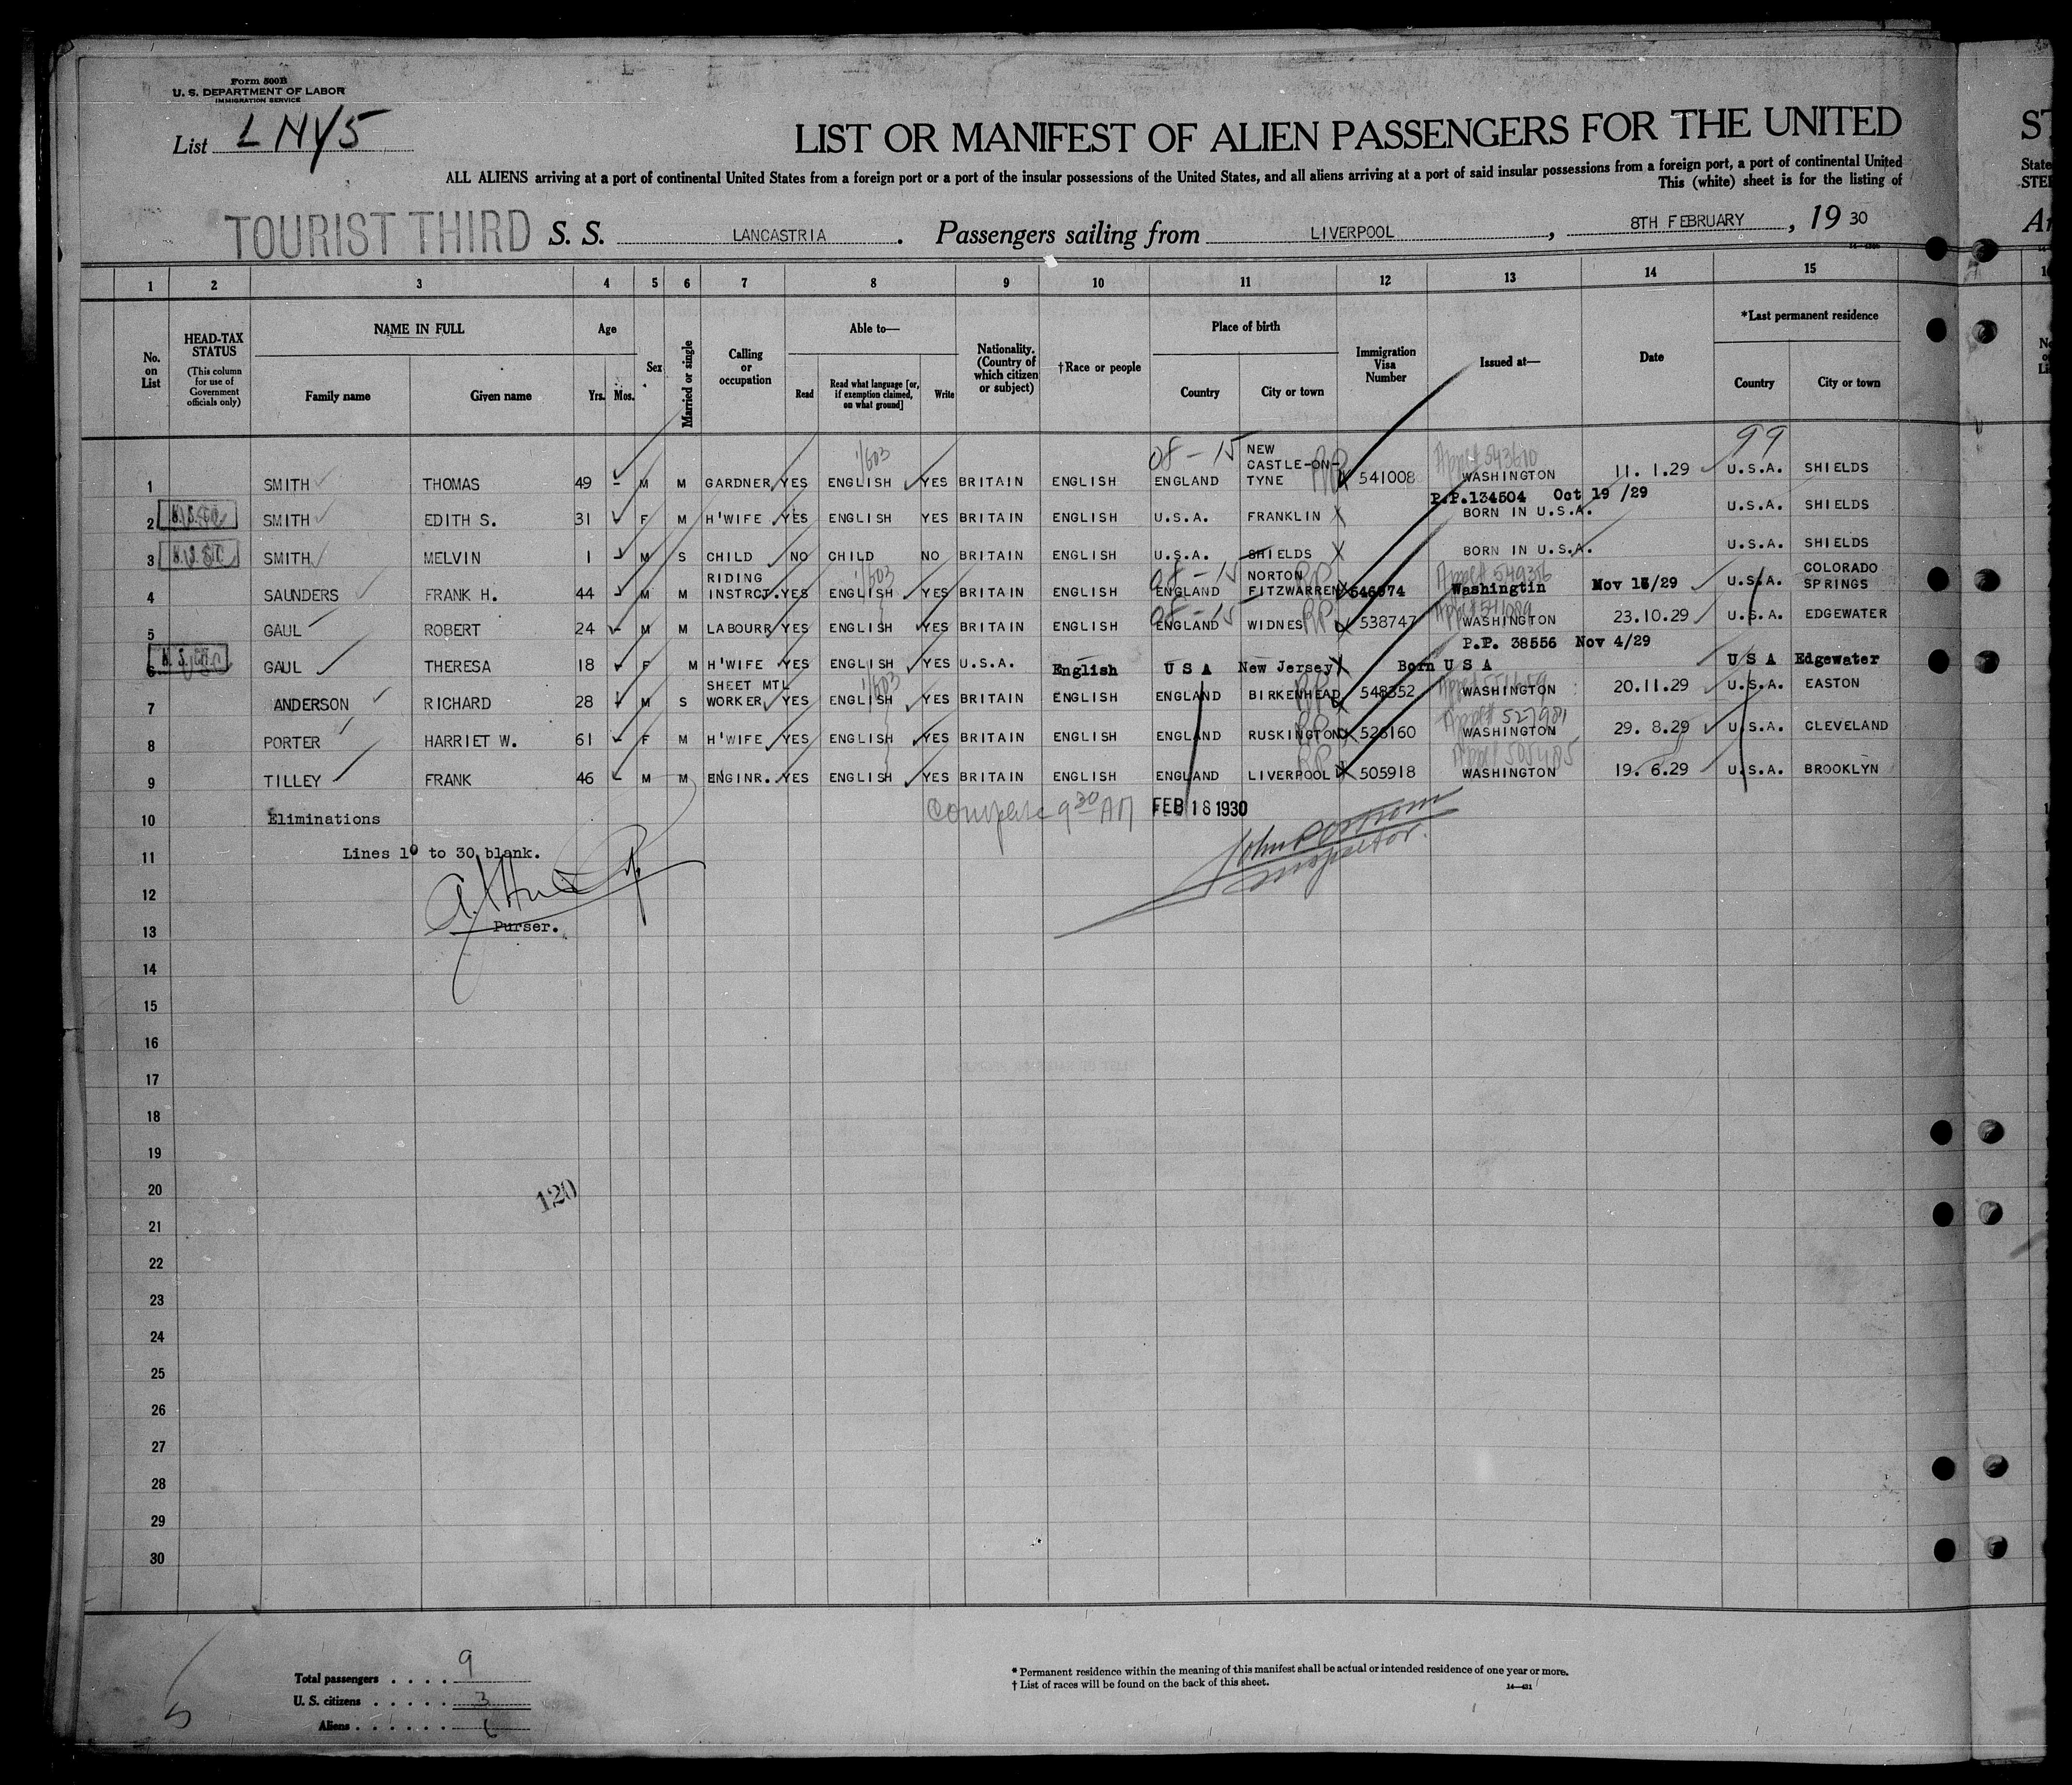 Form 500B
U. S. DEPARTMENT OF LABOR
IMMIGRATION SERVICE
List L NY 5
LIST OR MANIFEST OF ALIEN PASSENGERS FOR THE UNITED
ALL ALIENS arriving at a port of continental United States from a foreign port or a port of the insular possessions of the United States, and all aliens arriving at a port of said insular possessions from a foreign port, a port of continental United
This (white) sheet is for the listing of
TOURIST THIRD S. S. LANCASTRIA. Passengers sailing from LIVERPOOL, 8TH FEBRUARY, 19 30
1 2 3 4 5 6 7 8 9 10 11 12 13 14 15
No. on List
HEAD-TAX STATUS
(This column for use of Government officials only)
NAME IN FULL
Family name Given name
Age
Yrs. Mos.
Sex
Married or single
Calling or occupation
Able to—
Read Read what language [or, if exemption claimed, on what ground] Write
Nationality. (Country of which citizen or subject)
†Race or people
Place of birth
Country City or town
Immigration Visa Number
Issued at—
Date
*Last permanent residence
Country City or town
08 - 15 99
1 SMITH THOMAS 49 - M M GARDNER YES ENGLISH YES BRITAIN ENGLISH ENGLAND NEW CASTLE-ON-TYNE 541008 WASHINGTON 11. 1.29 U.S.A. SHIELDS
P.P.134504 Oct 19 /29
2 SMITH EDITH S. 31 F M H'WIFE YES ENGLISH YES BRITAIN ENGLISH U.S.A. FRANKLIN BORN IN U.S.A. U.S.A. SHIELDS
3 SMITH MELVIN 1 M S CHILD NO CHILD NO BRITAIN ENGLISH U.S.A. SHIELDS BORN IN U.S.A. U.S.A. SHIELDS
4 SAUNDERS FRANK H. 44 M M RIDING INSTRCT. YES ENGLISH YES BRITAIN ENGLISH ENGLAND NORTON FITZWARREN 546974 Washingtin Nov 15/29 U.S.A. COLORADO SPRINGS
08 - 15
5 GAUL ROBERT 24 - M M LABOURR YES ENGLISH YES BRITAIN ENGLISH ENGLAND WIDNES 538747 WASHINGTON 23.10.29 U.S.A. EDGEWATER
P.P. 38556 Nov 4/29
6 GAUL THERESA 18 F M H'WIFE YES ENGLISH YES U.S.A. English U S A New Jersey Born U S A U S A Edgewater
7 ANDERSON RICHARD 28 M S SHEET MTL WORKER YES ENGLISH YES BRITAIN ENGLISH ENGLAND BIRKENHEAD 548352 WASHINGTON 20.11.29 U.S.A. EASTON
8 PORTER HARRIET W. 61 - F M H'WIFE YES ENGLISH YES BRITAIN ENGLISH ENGLAND RUSKINGTON 526160 WASHINGTON 29. 8.29 U.S.A. CLEVELAND
9 TILLEY FRANK 46 M M ENGINR. YES ENGLISH YES BRITAIN ENGLISH ENGLAND LIVERPOOL 505918 WASHINGTON 19. 6.29 U.S.A. BROOKLYN
10 Eliminations
FEB 18 1930
11 Lines 10 to 30 blank.
Inspector.
12
13 Purser.
14
15
16
17
18
19
20
120
21
22
23
24
25
26
27
28
29
30
Total passengers . . . . 9
U. S. citizens . . . . . 3
Aliens . . . . . . 6
* Permanent residence within the meaning of this manifest shall be actual or intended residence of one year or more.
† List of races will be found on the back of this sheet.